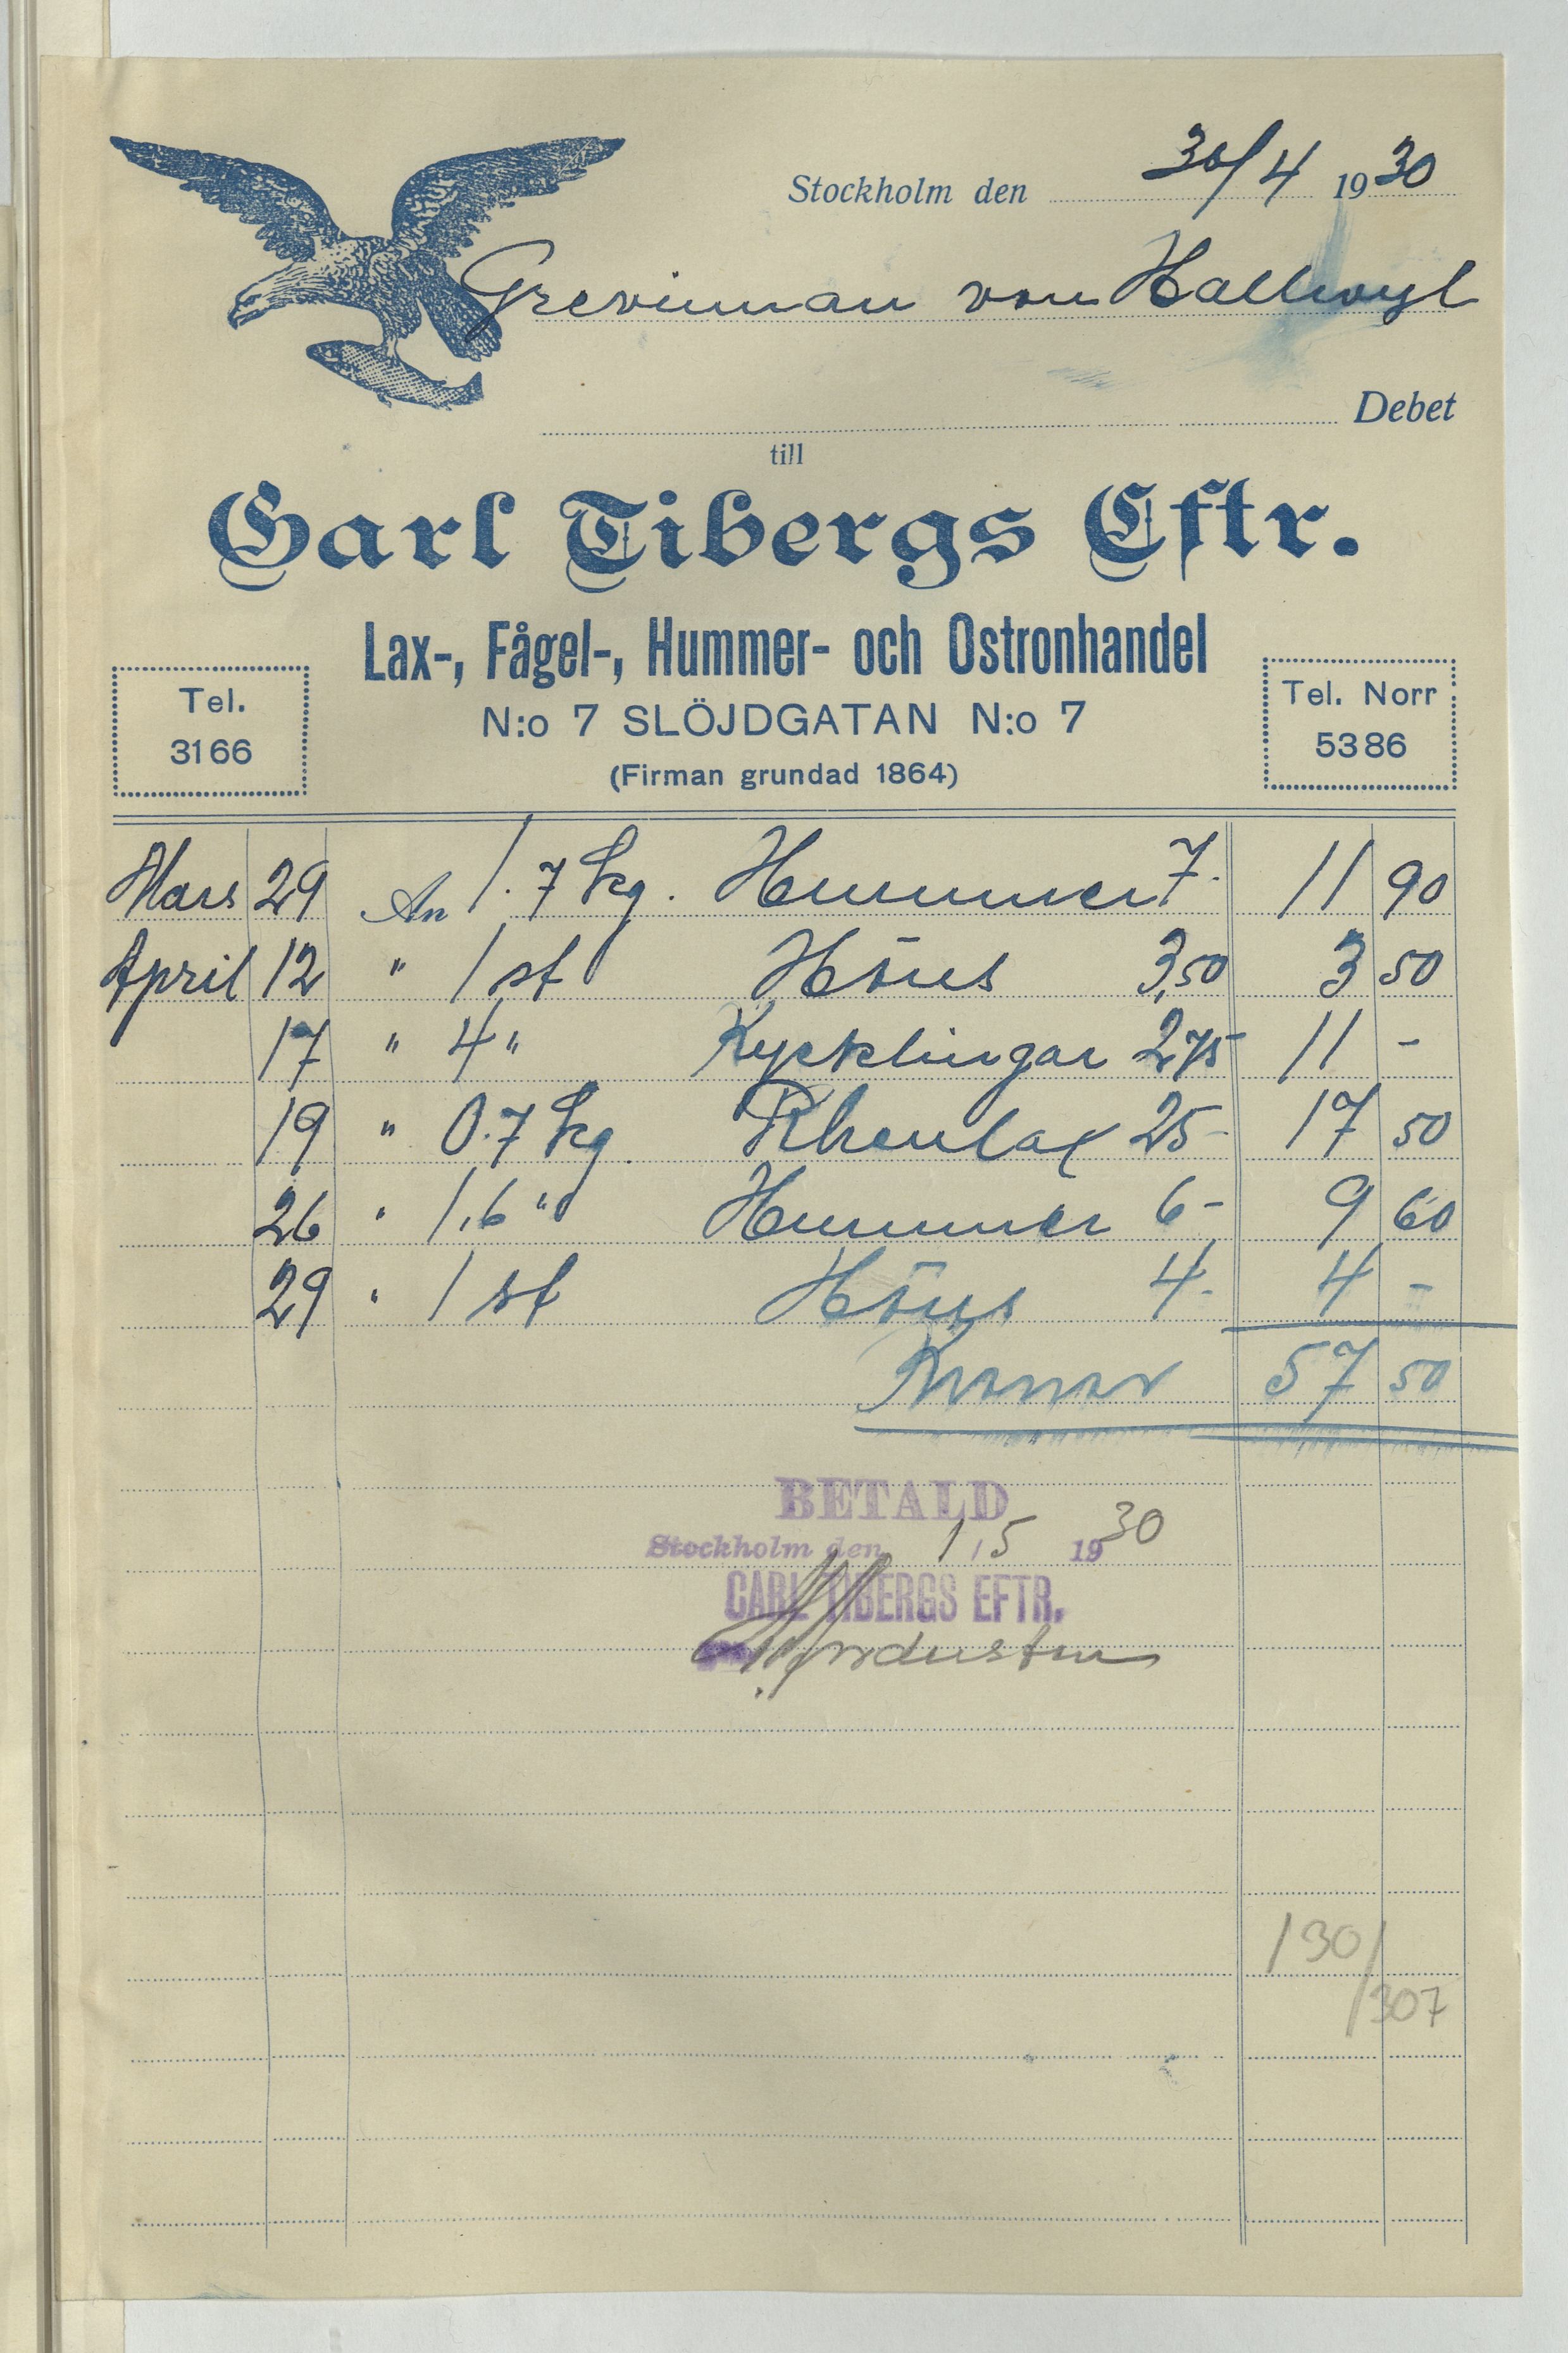 Stockholm den 30/4 1930
Grevinnan von Hallwyl
Debet
till
Carl Tibergs Eftr.
Lax-, Fågel-, Hummer- och Ostronhandel
Tel. 3166
N:o 7 SLÖJDGATAN N:o 7
Tel. Norr 5386
(Firman grundad 1864)
Mars 29 An 1.7 kg. Hummer 7.- 11 90
April 12 " 1 st Höns 3,50 3 50
17 " 4 " Kycklingar 2,75 11 -
19 " 0.7 kg. Rhenlax 25- 17 50
26 " 1,6 " Hummer 6- 9 60
29 " 1 st Höns 4- 4 -
Kronor 57 50
BETALD
Stockholm den 1/5 1930
CARL TIBERGS EFTR.
130/
/307